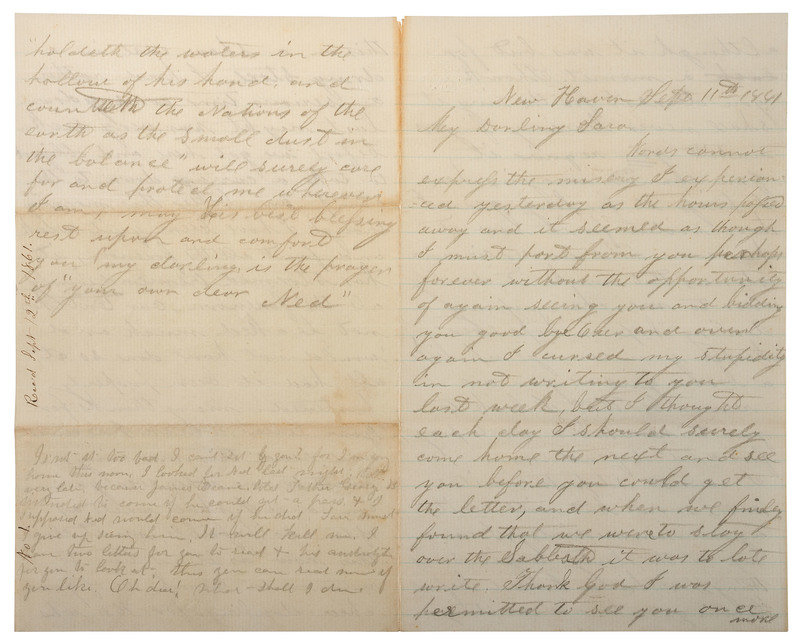 New Haven Sept 11th 1861
My Darling Sara
Words cannot
express the misery I experien-
ced yesterday as the hours passed
away and it seemed as though
I must part from you perhaps
forever without the opportunity
of again seeing you and bidding
you good bye Over and over
again I cursed my stupidity
in not writing to you
last week, but I thought
each day I should surely
come home the next and see
you before you could get
the letter, and when we finaly
found that we were to stay
over the Sabbath it was to late
write. Thank God I was
permitted to see you once
more
"holdeth the waters in the
hollow of his hand, and
counteth the Nations of the
earth as the small dust in
the balance" will surely care
for and protect me wherever
I am, may his best blessing
rest upon and comfort
you my darling is the prayer
of "your own dear Ned"
Recd Sept 12th 1861.
No 1.
Is not it too bad. I can't get by you? for I am
home this morn, I looked for Ned last night,
very late, because James Deane told Father George
Ned to come if he could get a pass & I
supposed Ned would come if he did I
give up seeing him, It will kill me. I
two letters for you to read & his
for you to look at. this you can read now if
you like. Oh dear! what shall I do